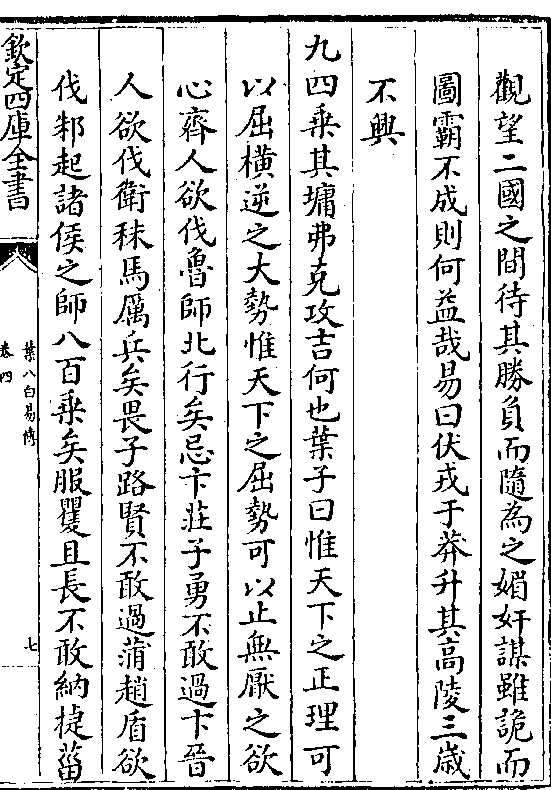 觀望二國之間待其勝負而隨為之媚奸謀雖詭而
圖霸不成則何益哉易曰伏戎于莽升其高陵三歲
不興
九四乗其墉弗克攻吉何也葉子曰惟天下之正理可
以屈橫逆之大勢惟天下之屈勢可以止無厭之欲
心齊人欲伐魯師北行矣忌卞莊子勇不敢過卞晉
人欲伐衛秣馬厲兵矣畏子路賢不敢過蒲趙盾欲
伐邾起諸侯之師八百乗矣服貜且長不敢納捷菑
欽定四庫全書
葉八白易傳
卷四
七